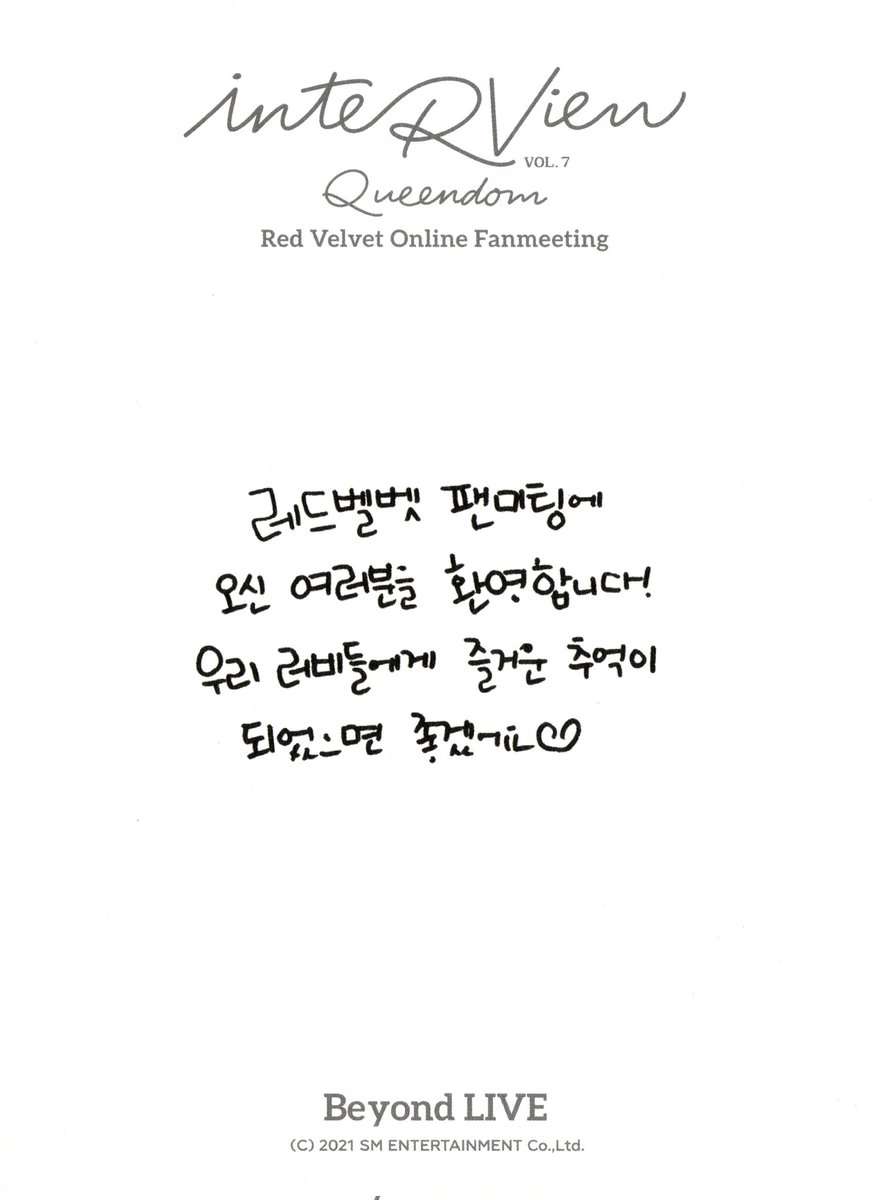 inteRView
VOL. 7
Queendom
Red Velvet Online Fanmeeting
레드벨벳 팬미팅에
오신 여러분을 환영합니다!
우리 러비들에게 즐거운 추억이
되었으면 좋겠어요♡
Beyond LIVE
(C) 2021 SM ENTERTAINMENT Co.,Ltd.